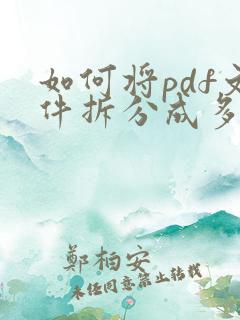 如何将pdf文
件拆分成多
鄭柏安
未经同意禁止转载